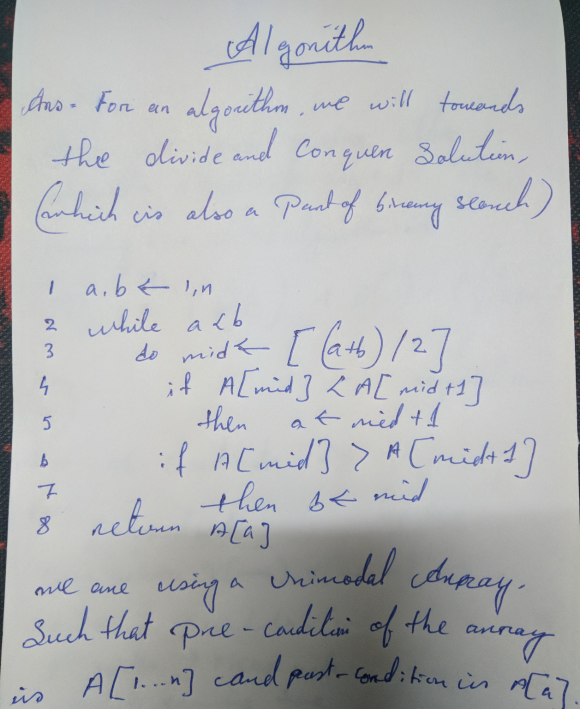 Algorithm
Ans - For an algorithm, we will towards
the divide and Conquer Solution,
(which is also a Part of binary search)
1 a, b ← 1, n
2 while a < b
3 do mid ← [(a+b)/2]
4 if A[mid] < A[mid+1]
5 then a ← mid+1
6 if A[mid] > A[mid+1]
7 then b ← mid
8 return A[a]
we are using a Unimodal Array.
Such that pre-condition of the array
is A[1...n] and post-condition is A[a].